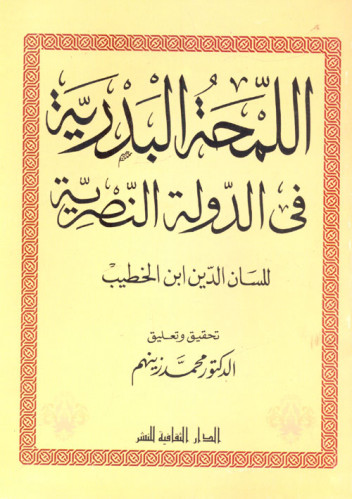 اللمحة البدرية
فى الدولة النصرية
للسان الدين ابن الخطيب
تحقيق وتعليق
الدكتور محمد زينهم
الدار الثقافية للنشر